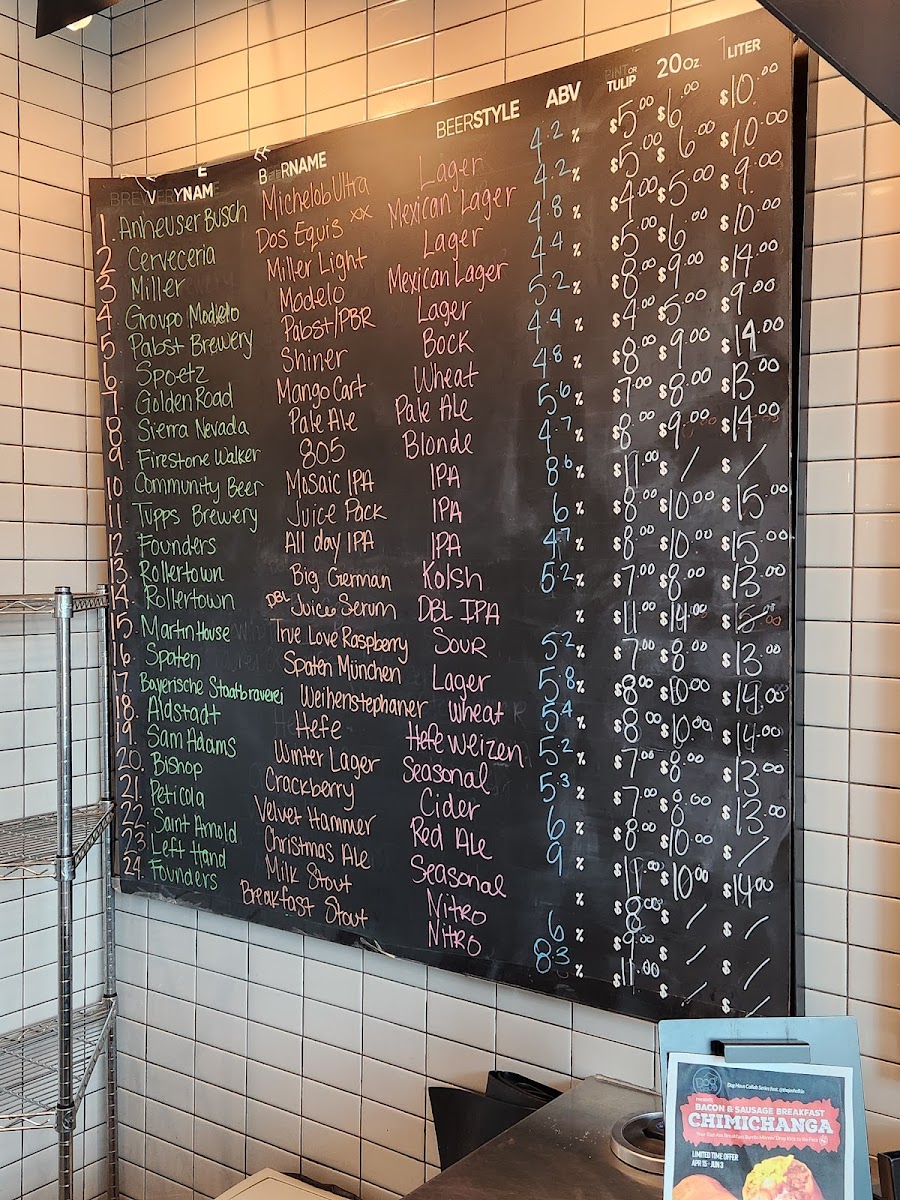 BREWERYNAME BEERNAME BEERSTYLE ABV PINT OR TULIP 20oz 1 LITER
1. Anheuser Busch Michelob Ultra Lager 4.2 % $5.00 $6.00 $10.00
2. Cerveceria Dos Equis xx Mexican Lager 4.2 % $5.00 $6.00 $10.00
3. Miller Miller Light Lager 4.8 % $4.00 $5.00 $9.00
4. Groupo Modelo Modelo Mexican Lager 4.4 % $5.00 $6.00 $10.00
5. Pabst Brewery Pabst/PBR Lager 5.2 % $8.00 $9.00 $14.00
6. Spoetz Shiner Bock 4.4 % $4.00 $5.00 $9.00
7. Golden Road Mango Cart Wheat 4.8 % $8.00 $9.00 $14.00
8. Sierra Nevada Pale Ale Pale Ale 5.6 % $7.00 $8.00 $13.00
9. Firestone Walker 805 Blonde 4.7 % $8.00 $9.00 $14.00
10. Community Beer Mosaic IPA IPA 8.6 % $11.00 $ / $ /
11. Tupps Brewery Juice Pack IPA 6 % $8.00 $10.00 $15.00
12. Founders All day IPA IPA 4.7 % $8.00 $10.00 $15.00
13. Rollertown Big German Kolsh 5.2 % $7.00 $8.00 $13.00
14. Rollertown DBL Juice Serum DBL IPA % $11.00 $14.00 $15.00
15. Martin House True Love Raspberry Sour 5.2 % $7.00 $8.00 $13.00
16. Spaten Spaten München Lager 5.8 % $8.00 $10.00 $14.00
17. Bayerische Staatbraverei Weihenstephaner Wheat 5.4 % $8.00 $10.00 $14.00
18. Aldstadt Hefe Hefe Weizen 5.2 % $7.00 $8.00 $13.00
19. Sam Adams Winter Lager Seasonal 5.3 % $7.00 $8.00 $13.00
20. Bishop Crackberry Cider 6 % $8.00 $10.00 $ /
21. Peticola Velvet Hammer Red Ale 9 % $11.00 $10.00 $14.00
22. Saint Arnold Christmas Ale Seasonal % $8.00 $ / $ /
23. Left Hand Milk Stout Nitro 6 % $9.00 $ / $ /
24. Founders Breakfast Stout Nitro 8.3 % $11.00 $ / $ /
BACON & SAUSAGE BREAKFAST
CHIMICHANGA
LIMITED TIME OFFER
APR 15 - JUN 3